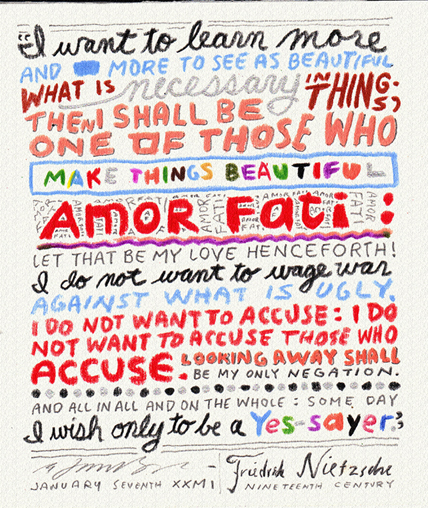 "I want to learn more
AND MORE TO SEE AS BEAUTIFUL
WHAT IS necessary IN THINGS;
THEN I SHALL BE
ONE OF THOSE WHO
MAKE THINGS BEAUTIFUL
AMOR FATi:
LET THAT BE MY LOVE HENCEFORTH!
I do not want to wage war
AGAINST WHAT IS UGLY.
I DO NOT WANT TO ACCUSE: I DO
NOT WANT TO ACCUSE THOSE WHO
ACCUSE. LOOKING AWAY SHALL
BE MY ONLY NEGATION.
AND ALL IN ALL AND ON THE WHOLE: SOME DAY
I wish only to be a Yes-sayer;
JANUARY SEVENTH XXMI
Friedrich Nietzsche
NINETEENTH CENTURY